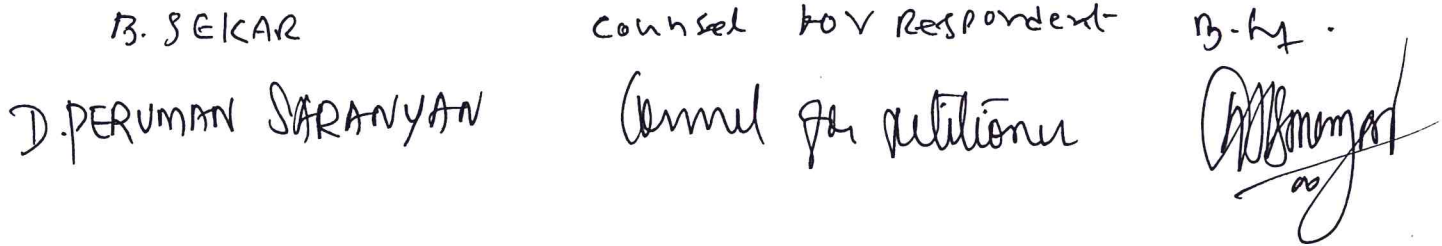 B. SEKAR Counsel for Respondent
D. PERUMAN SARANYAN Counsel for petitioner